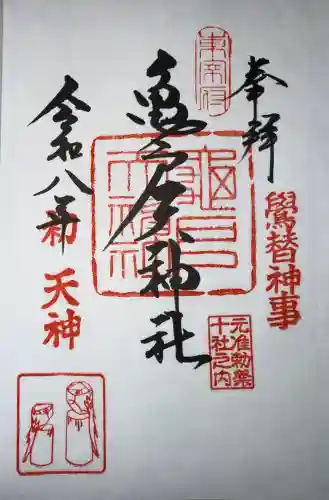 奉拝
鷽替神事
元准勅祭
十社之内
東宰府
亀戸天神社
亀戸天神社
令和八年
初天神